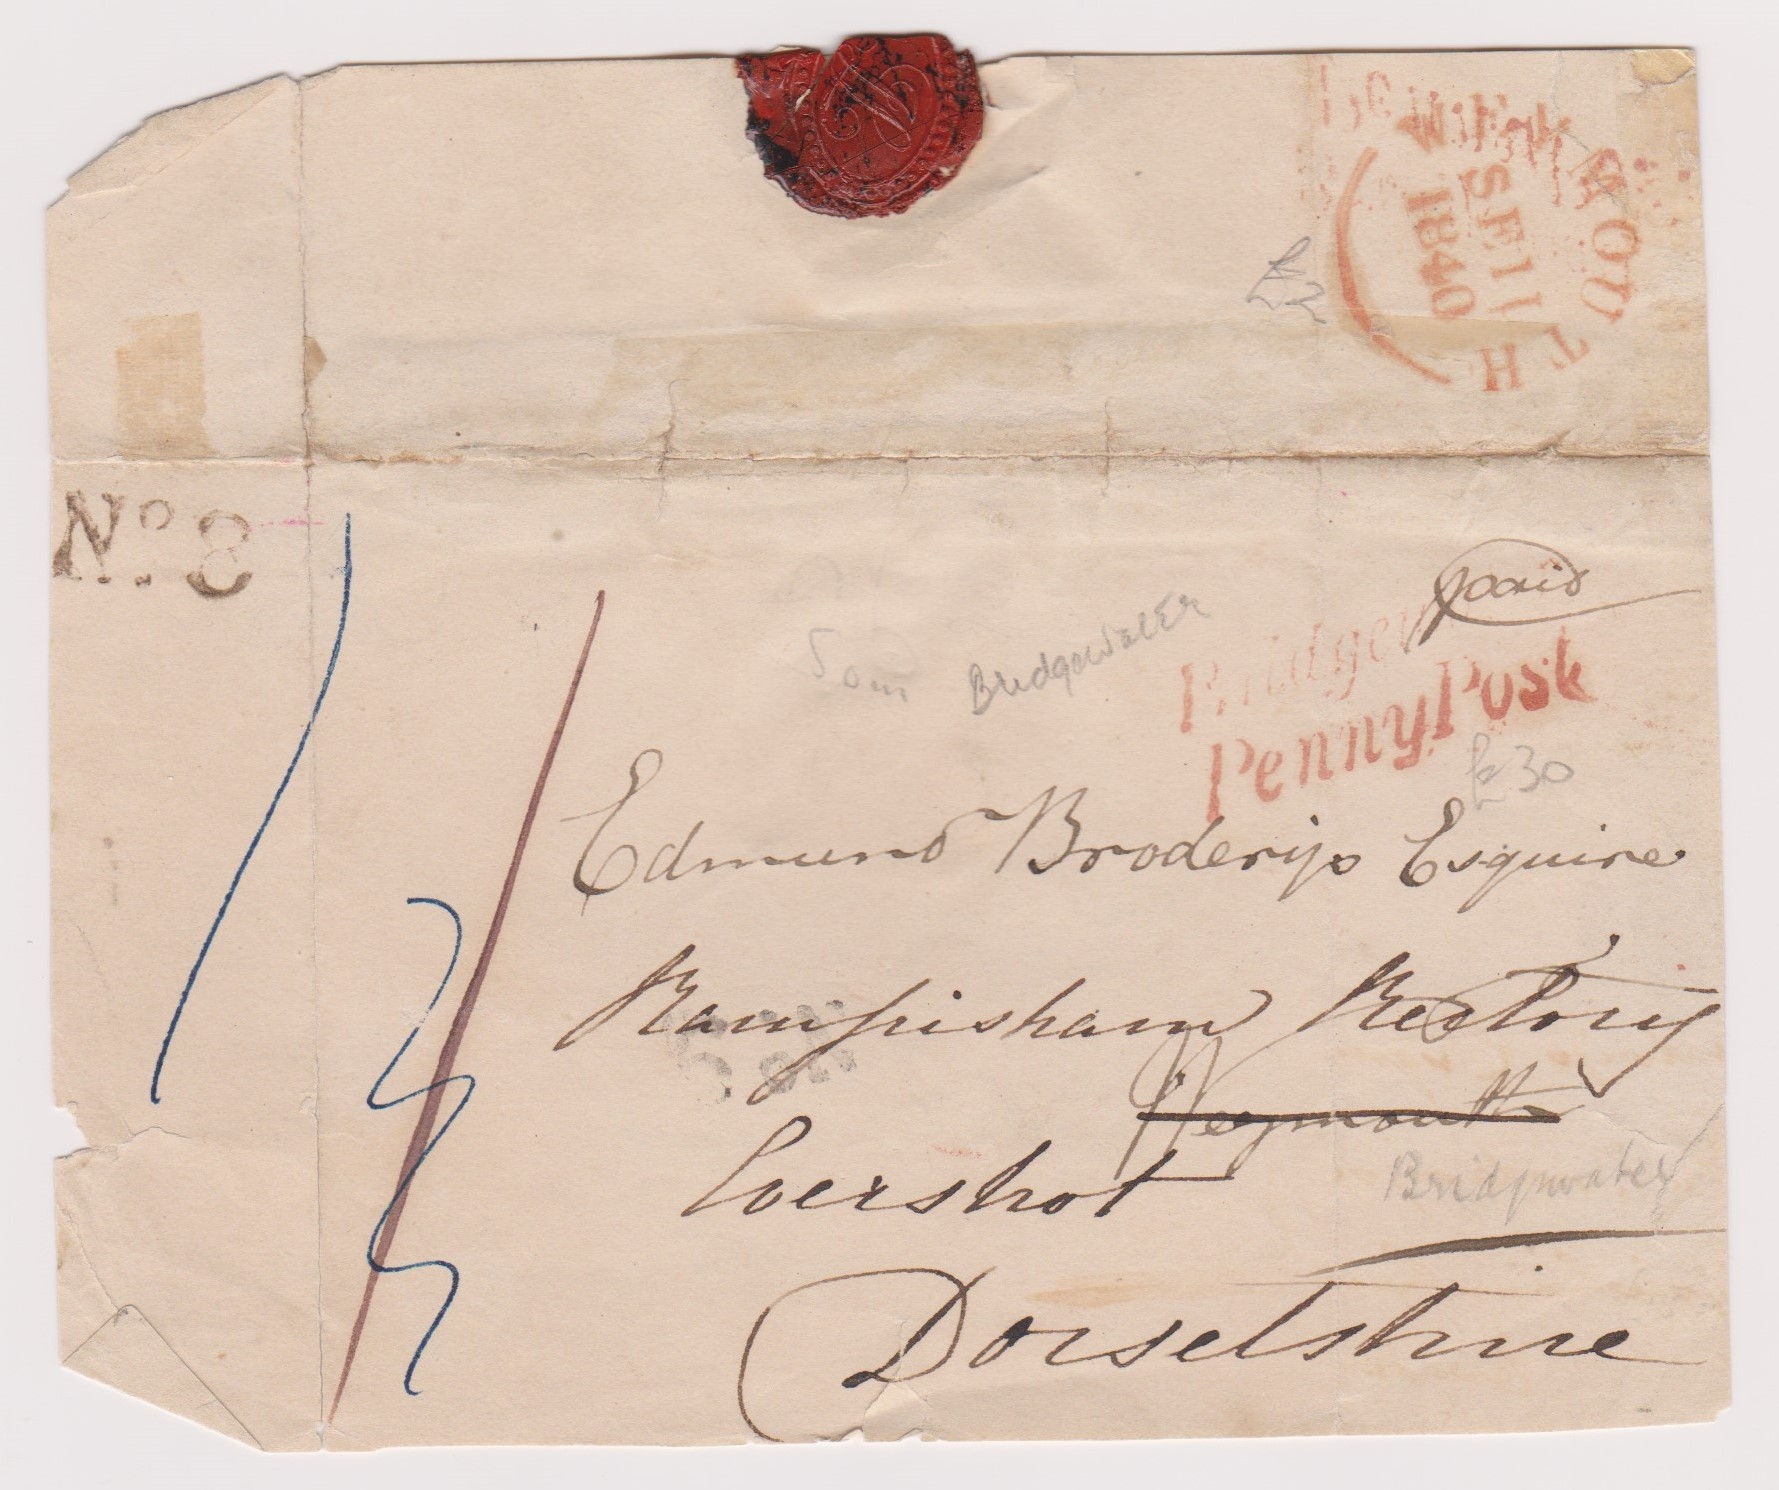 MOUTH
SE 11
1840
£2
No. 8
paid
Som Bridgewater
Bridgew
Penny Post
£30
Edmund Broderip Esquire
Rampisham Rectory
Weymouth
Evershot
Bridgwater
Dorsetshire